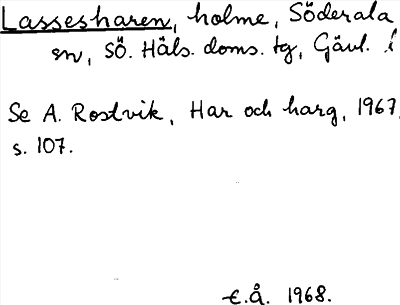 Lassesharen, holme, Söderala
sn, Sö. Häls. doms. tg, Gävl. l
Se A. Rostvik, Har och harg, 1967,
s. 107.
E.Å. 1968.